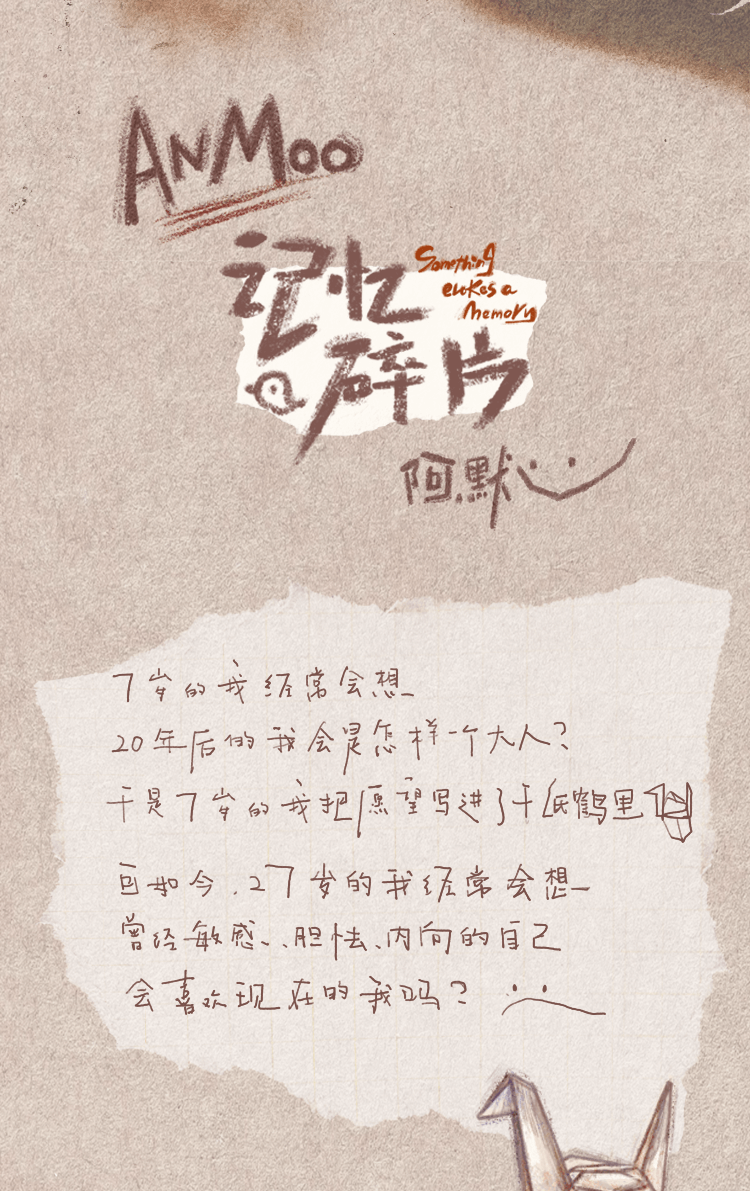 ANMOO
记忆
碎片
Something
evokes a
Memory
阿默
7岁的我经常会想
20年后的我会是怎样一个大人?
于是7岁的我把愿望写进了千纸鹤里
可如今,27岁的我经常会想
曾经敏感、胆怯、内向的自己
会喜欢现在的我吗?